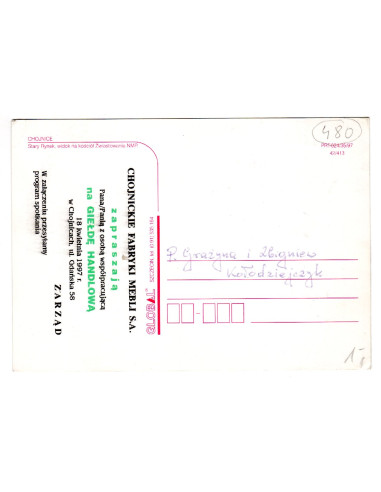 CHOJNICE
Stary Rynek, widok na kościół Zwiastowania NMP
480
CHOJNICKIE FABRYKI MEBLI S.A.
zapraszają
Pana/Panią z osobą współpracującą
na GIEŁDĘ HANDLOWĄ
18 kwietnia 1997 r.
w Chojnicach, ul. Gdańska 58
ZARZĄD
W załączeniu przesyłamy
program spotkania
P. Grażyna i Zbigniew
Kołodziejczyk